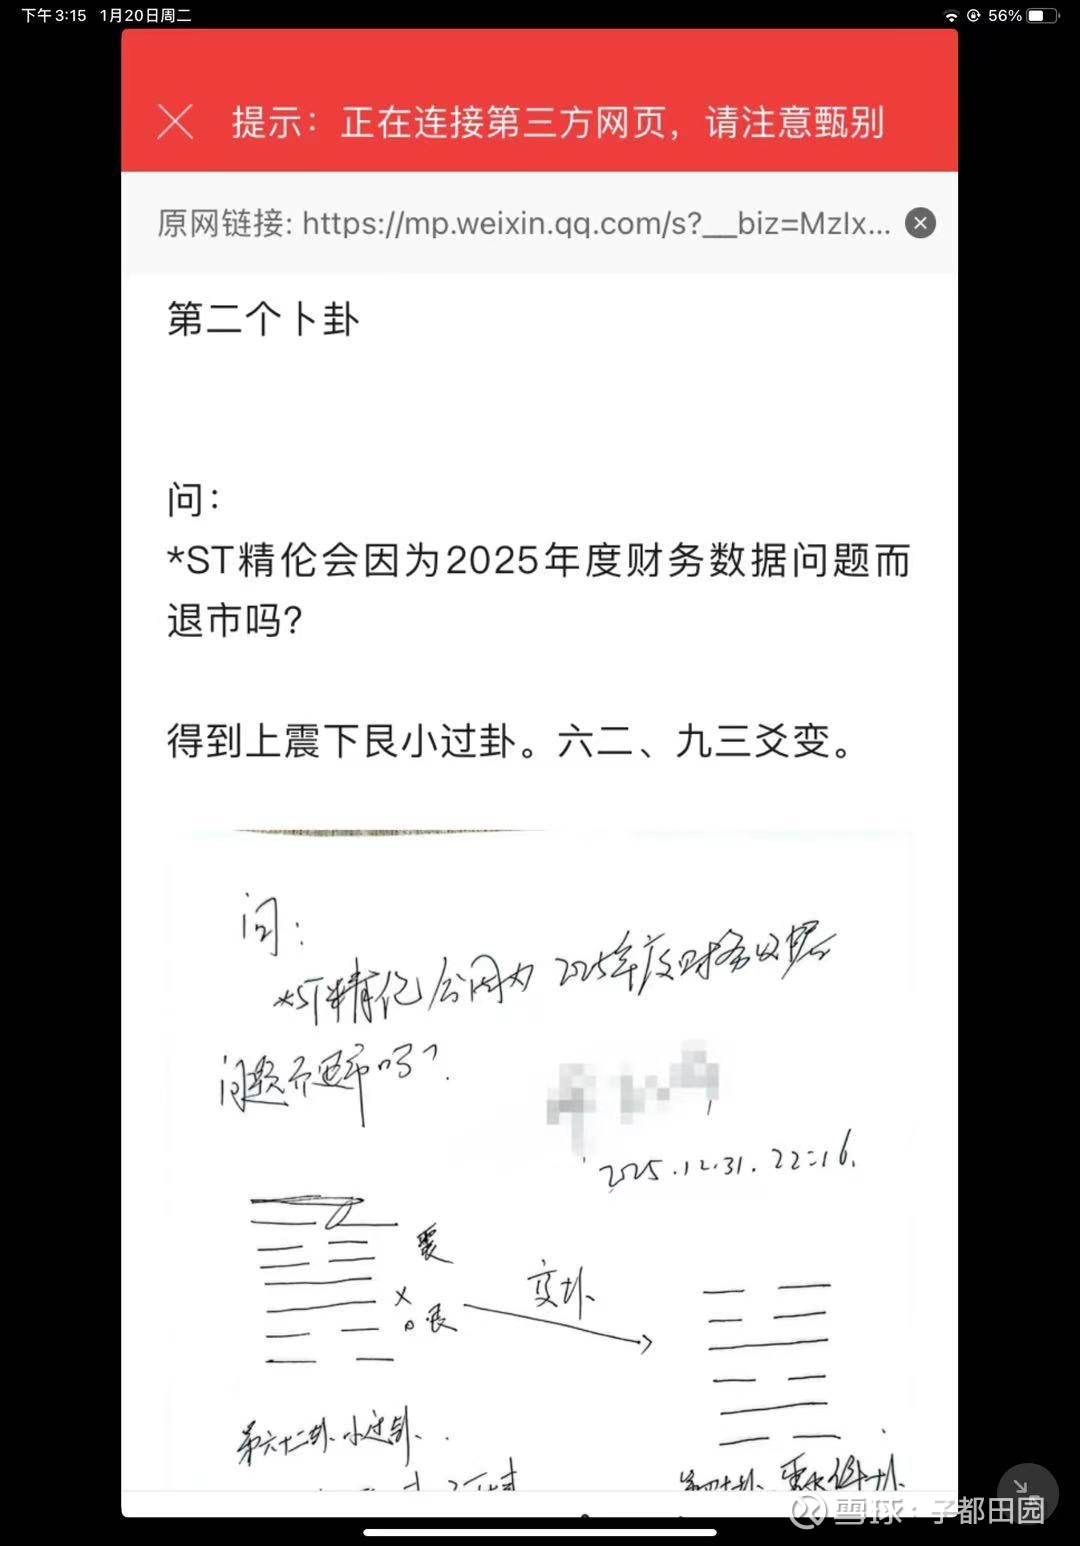 下午3:15 1月20日周二
56%
提示：正在连接第三方网页，请注意甄别
原网链接: https://mp.weixin.qq.com/s?__biz=MzIx...
第二个卜卦
问：
*ST精伦会因为2025年度财务数据问题而
退市吗？
得到上震下艮小过卦。六二、九三爻变。
问：
*ST精伦会因为2025年度财务数据
问题而退市吗？
2025.12.31.22:16.
震
变卦
艮
第六十二卦、小过卦、
第四十卦、雷水解卦、
雪球：子都田园